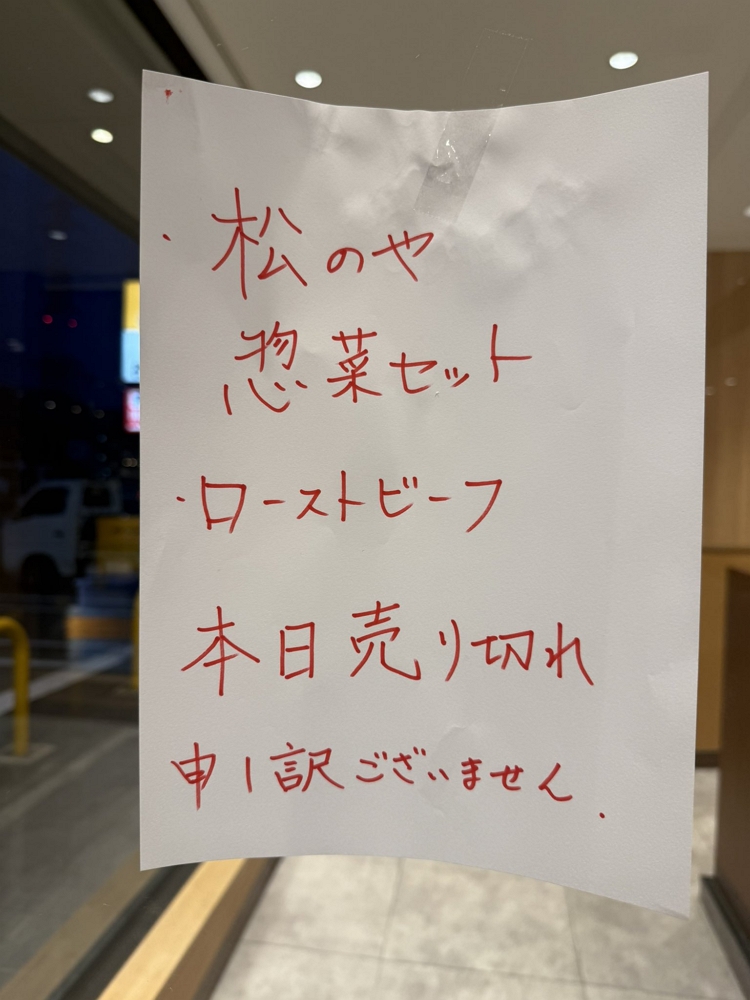 ・松のや
惣菜セット
・ローストビーフ
本日売り切れ
申し訳ございません.